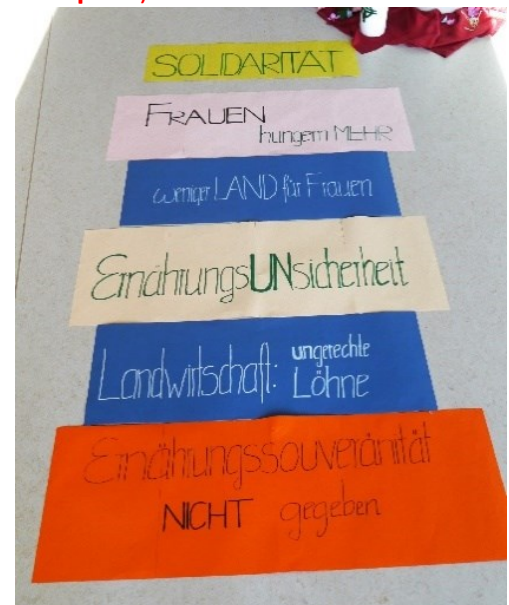 SOLIDARITÄT
FRAUEN
hungern MEHR
weniger LAND für Frauen
ErnährungsUNsicherheit
Landwirtschaft: ungerechte
Löhne
Ernährungssouveränität
NICHT gegeben